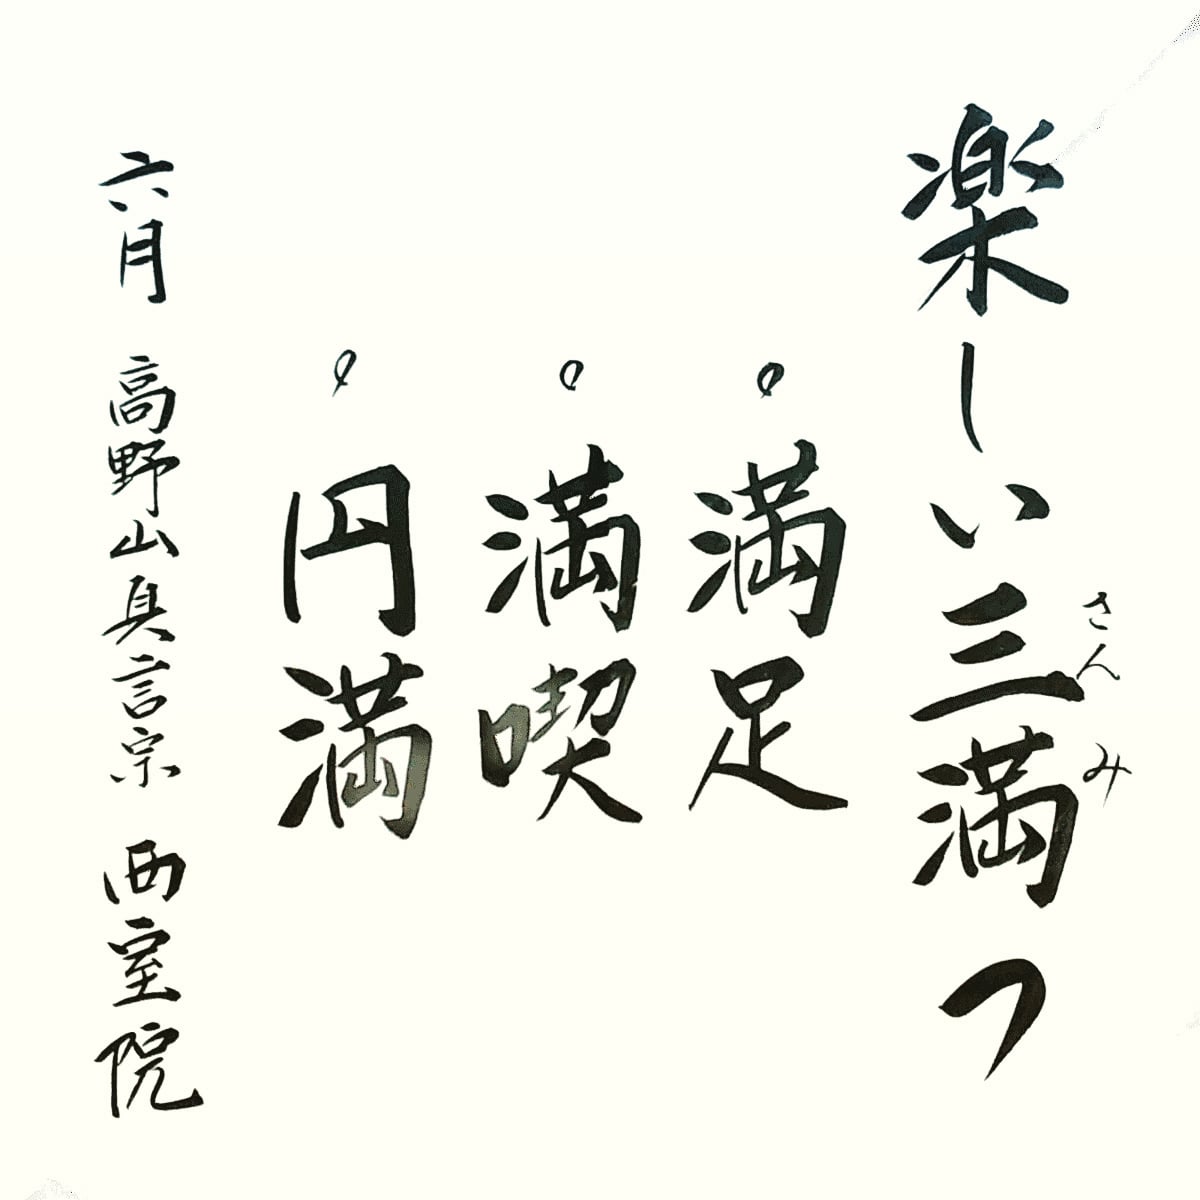 楽しい三満つ
さんみ
・満足
・満喫
・円満
六月 高野山真言宗 西室院